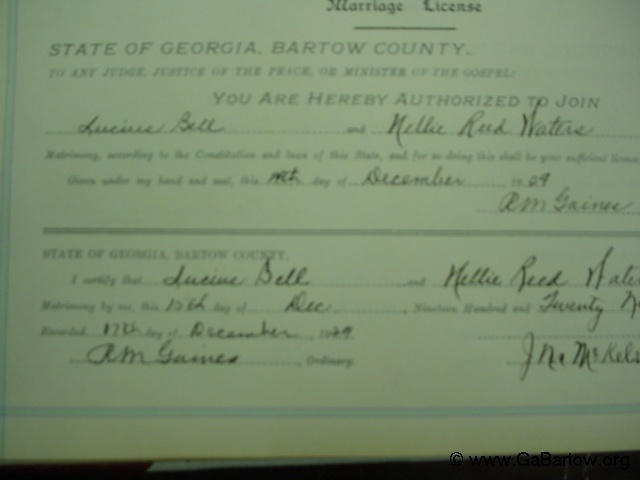 Marriage License
STATE OF GEORGIA, BARTOW COUNTY.
TO ANY JUDGE, JUSTICE OF THE PEACE, OR MINISTER OF THE GOSPEL:
YOU ARE HEREBY AUTHORIZED TO JOIN
Lucius Bell and Nellie Reed Waters
Matrimony, according to the Constitution and laws of this State, and for so doing this shall be your sufficient license
Given under my hand and seal, this day of December, 1929
RM Gaines
STATE OF GEORGIA, BARTOW COUNTY.
I certify that Lucius Bell and Nellie Reed Water
Matrimony by me, this day of Dec., Nineteen Hundred and Twenty N
Recorded, 17th day of December, 1929
RM Gaines, Ordinary.
McKels
© www.GaBartow.org